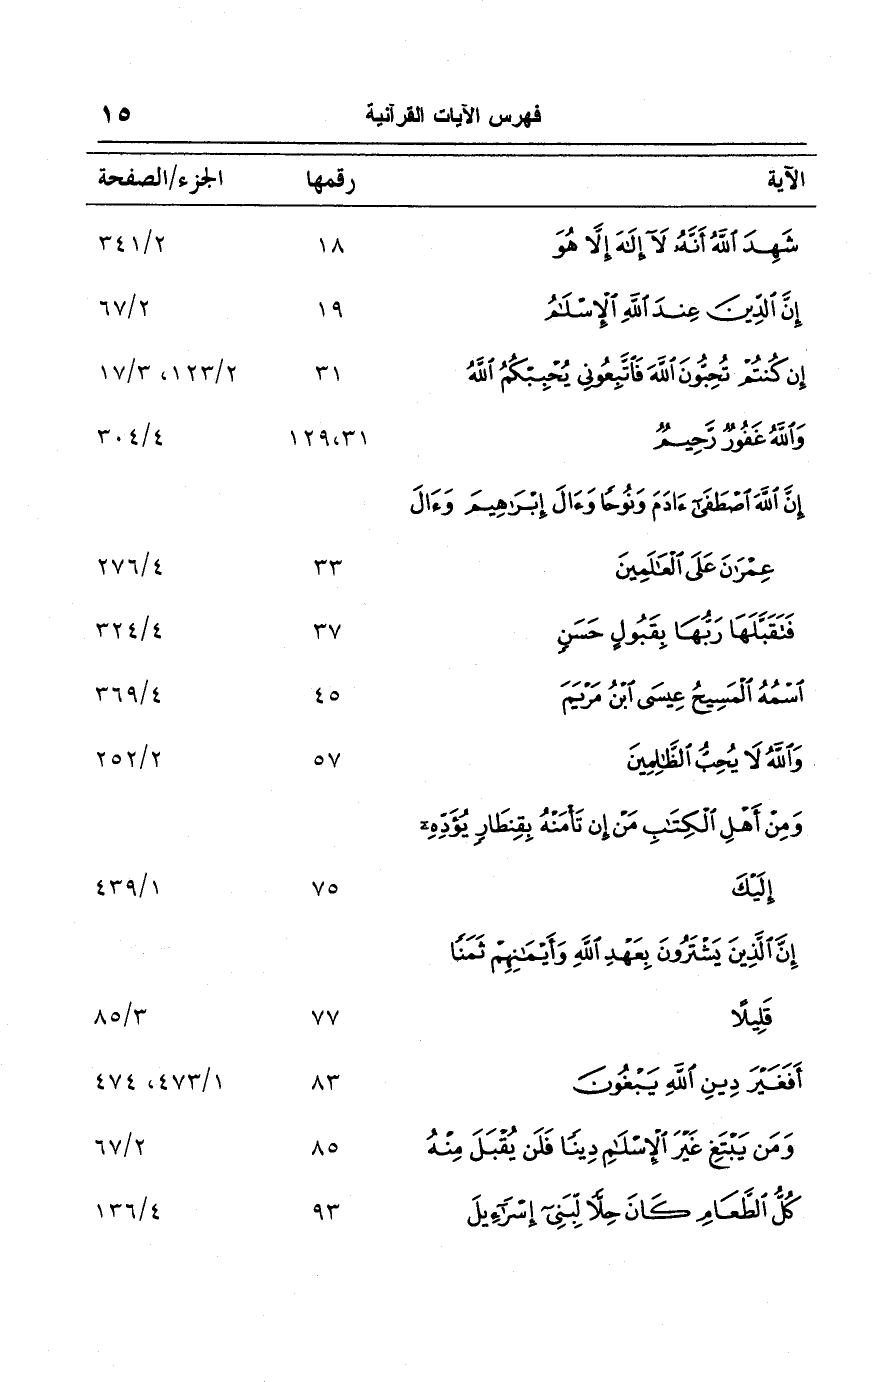 فهرس الآيات القرآنية ١٥
الآية رقمها الجزء/الصفحة
شَهِدَ ٱللَّهُ أَنَّهُۥ لَآ إِلَٰهَ إِلَّا هُوَ ١٨ ٣٤١/٢
إِنَّ ٱلدِّينَ عِندَ ٱللَّهِ ٱلْإِسْلَٰمُ ١٩ ٦٧/٢
إِن كُنتُمْ تُحِبُّونَ ٱللَّهَ فَٱتَّبِعُونِى يُحْبِبْكُمُ ٱللَّهُ ٣١ ١٢٣/٢، ١٧/٣
وَٱللَّهُ غَفُورٌ رَّحِيمٌ ١٢٩،٣١ ٣٠٤/٤
إِنَّ ٱللَّهَ ٱصْطَفَىٰٓ ءَادَمَ وَنُوحًا وَءَالَ إِبْرَٰهِيمَ وَءَالَ
عِمْرَٰنَ عَلَى ٱلْعَٰلَمِينَ ٣٣ ٢٧٦/٤
فَتَقَبَّلَهَا رَبُّهَا بِقَبُولٍ حَسَنٍ ٣٧ ٣٢٤/٤
ٱسْمُهُ ٱلْمَسِيحُ عِيسَى ٱبْنُ مَرْيَمَ ٤٥ ٣٦٩/٤
وَٱللَّهُ لَا يُحِبُّ ٱلظَّٰلِمِينَ ٥٧ ٢٥٢/٢
وَمِنْ أَهْلِ ٱلْكِتَٰبِ مَنْ إِن تَأْمَنْهُ بِقِنطَارٍ يُؤَدِّهِۦٓ
إِلَيْكَ ٧٥ ٤٣٩/١
إِنَّ ٱلَّذِينَ يَشْتَرُونَ بِعَهْدِ ٱللَّهِ وَأَيْمَٰنِهِمْ ثَمَنًا
قَلِيلًا ٧٧ ٨٥/٣
أَفَغَيْرَ دِينِ ٱللَّهِ يَبْغُونَ ٨٣ ٤٧٣/١، ٤٧٤
وَمَن يَبْتَغِ غَيْرَ ٱلْإِسْلَٰمِ دِينًا فَلَن يُقْبَلَ مِنْهُ ٨٥ ٦٧/٢
كُلُّ ٱلطَّعَامِ كَانَ حِلًّا لِّبَنِىٓ إِسْرَٰٓءِيلَ ٩٣ ١٣٦/٤